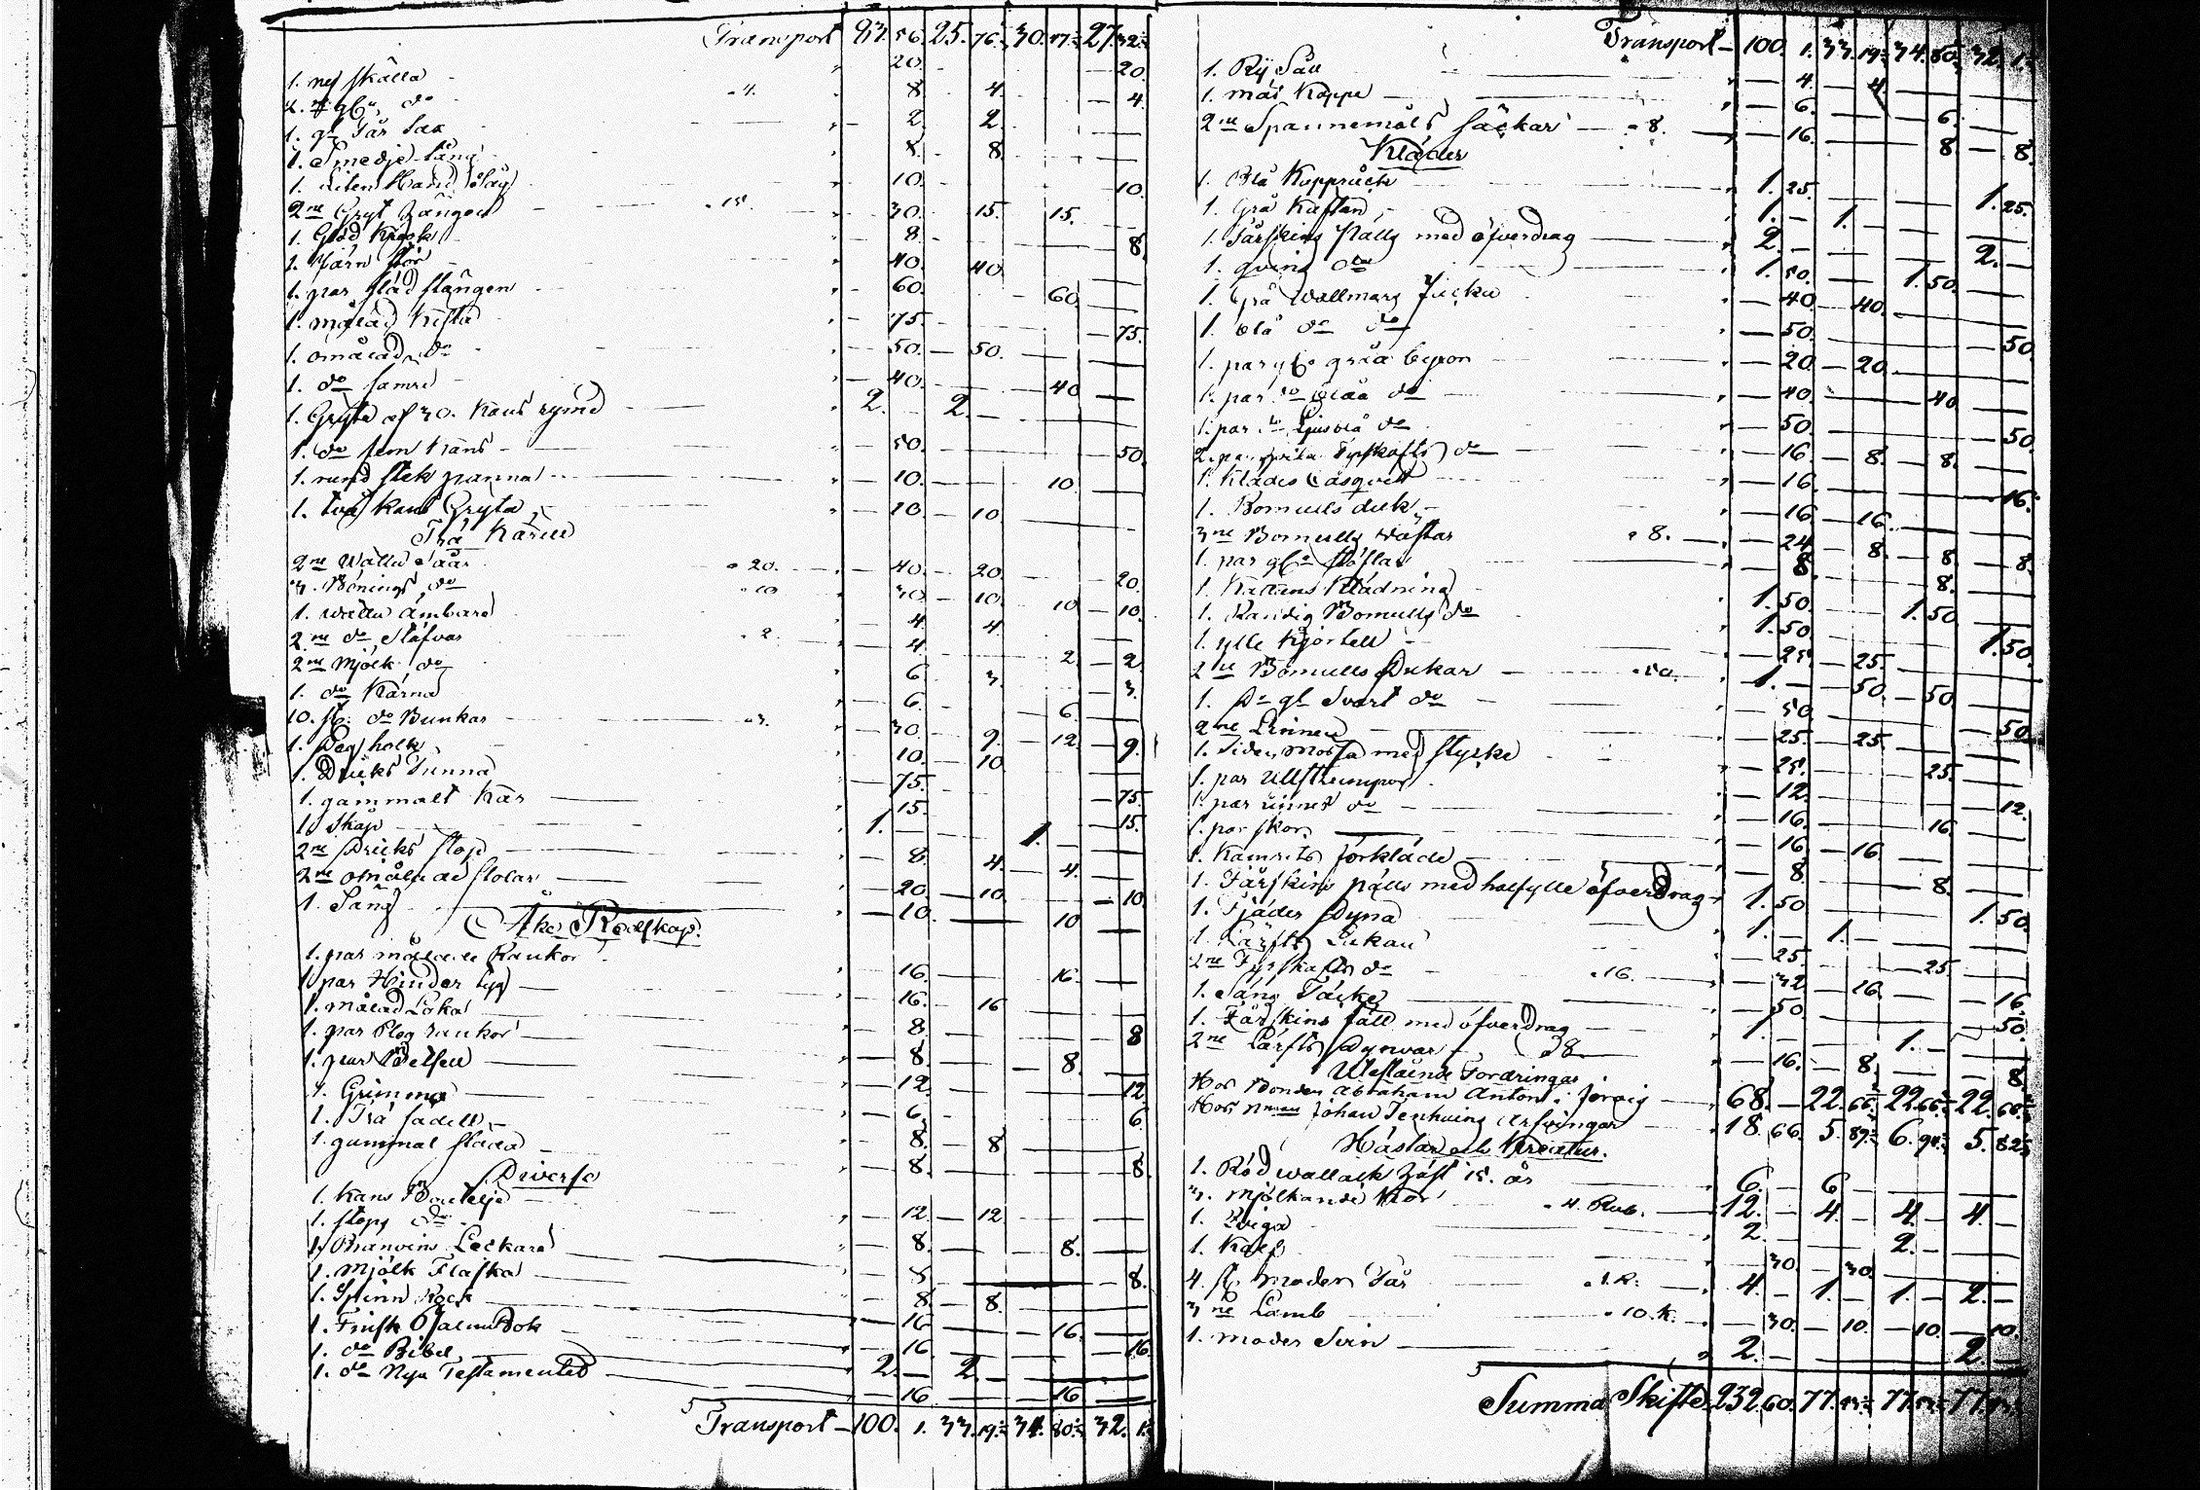 Transport 83. 56. 25. 76. 30. 27. 32.
1. ny skälla " 20. — 20.
2. st gl. do " 4. " 8. 4. — 4.
1. gl Får Sax " — 2. 2.
1. Smedje tång " — 8. 8.
1. Liten Hand Såg " — 10. — 10.
2ne Gryt " 15. " — 30. 15. 15.
1. Glöd Krok " — 8. 8.
1. Järn stör " — 40. 40.
1. par släd stängen " — 60. 60.
1. målad Kista " — 75. — 75.
1. omålad do " — 50. — 50.
1. do samre — 40. 40.
1. Gryta af 30. Kans rymd " 2. 2. —
1. do fem Kans " — 50. 50.
1. rund stek panna " — 10. 10.
1. två Kans Gryta " — 10. — 10.
Trä Kärill
2ne Wattu Såår " 20. " — 40. — 20. 20.
3. Bönings do " 10 " — 30. — 10. 10. — 10.
1. Wattu Ämbare " — 4. — 4.
2ne do Stäfvor " 2. " — 4. 2. — 2.
2ne Mjölk do " — 6. 3. 3.
1. do Kärna " — 6. 6.
10. st. do Bunkar " 3. " — 30. 9. 12. — 9.
1. Deg holk " — 10. 10.
1. Dricks Tunna " — 75. — 75.
1. gammalt Kar " — 15. — 15.
1. Skåp " 1. — 1.
2ne Dricks stop " — 8. 4. 4.
2ne omålade stolar " — 20. — 10. — 10.
1. Säng " — 10. 10
Åke Redskap.
1. par målade Rankor " — 16. 16.
1. par Hinder tyg " — 16. 16
1. målad Loka " — 8. 8
1. par Plog rankor " — 8. 8.
1. par Betsel " — 12. 12
1. Grimma " — 6. 6.
1. Trä sadell " — 8. — 8
1. gammal släda " — 8. 8.
Diverse
1. Kans Boutelje " — 12. — 12.
1. stops do " — 8. 8.
1. Branvins Leckare " — 8. 8.
1. Mjölk Flaska " — 8. — 8.
1. Spinn Rock " — 16. 16.
1. Finsk Psalmbok " — 16. 16.
1. do Bibel " 2. — 2.
1. do Nya Testamentet — 16. 16
Transport — 100. 1. 33. 19. 34. 80. 32. 1.
Transport — 100. 1. 33. 19. 34. 80. 32. 1.
1. Rÿ Såll " — 4. — 4.
1. Koppa " — 6. 6.
2ne Spannemåls säckar " 8. — 16. 8. — 8.
Kläder
1. Blå " 1. 25. 1. 25.
1. Grå Kaftan " 1. — 1.
1. Fårskins Pälls med öfverdrag " 2. — 2. —
1. qvins do " 1. 50. 1. 50.
1. grå Wallmars " — 40. — 40.
1. blå do do " — 50. 50.
1. par gl. gråa byxor " — 20. — 20.
1. par do blåa do " — 40. 40
1. par do ljusblå do " — 50. 50.
2. par do " — 16. — 8. — 8.
1. Klädes Casquett " — 16. 16.
1. Bomulls duk " — 16. — 16.
3ne Bomulls Wästar " 8. " — 24. 8. 8. 8.
1. par gl. stöflar " — 8. 8.
1. Kattuns Klädning " 1. 50. 1. 50.
1. Randig Bomulls do " 1. 50. 1. 50.
1. ylle Kjortell " — 25. — 25.
2ne Bomulls Dukar " 50. " 1. — 50. 50.
1. Do gl Svart do " — 50. 50.
2ne Linnen " — 25. — 25.
1. Siden mössa med stycke " — 25. 25.
1. par Ullstrumpor " — 12. 12.
1. par do " — 16. 16.
1. par skor " — 16. — 16.
1. Kamrits Förkläde " — 8. 8.
1. Fårskins pälls med halfylle öfverdrag " 1. 50. 1. 50.
1. Fjäder Dyna " 1. — 1. —
1. Lärfts Lakan " — 25. 25.
2ne do " 16. " — 32. 16. 16.
1. Säng Täcke " — 50. 50.
1. Fårskins fäll med öfverdrag " 1. 1. —
2ne Lärfts Dynvar " 8. " — 16. 8. 8.
Utestående Fordringar
Hos Bonden Abraham Anton i " 68. — 22. 66. 22. 66. 22. 66.
Hos Johan arfvingar 18. 66. 5. 6. 5. 82
Hästar och Kreatur.
1. Röd wallack häst 15. år " 6. 6. —
3. Mjölkande Kor " 4. Rub. 12. — 4. — 4. — 4. —
1. Qviga 2. 2. —
1. Kalf — 30. 30.
4. st. moder Får " 1. R. 4. — 1. — 1. — 2. —
3ne Lamb " 10. K. — 30. — 10. — 10. — 10.
1. moder Svin " 2. — 2. —
Summa Skifte 232. 60. 77. 77. 77.